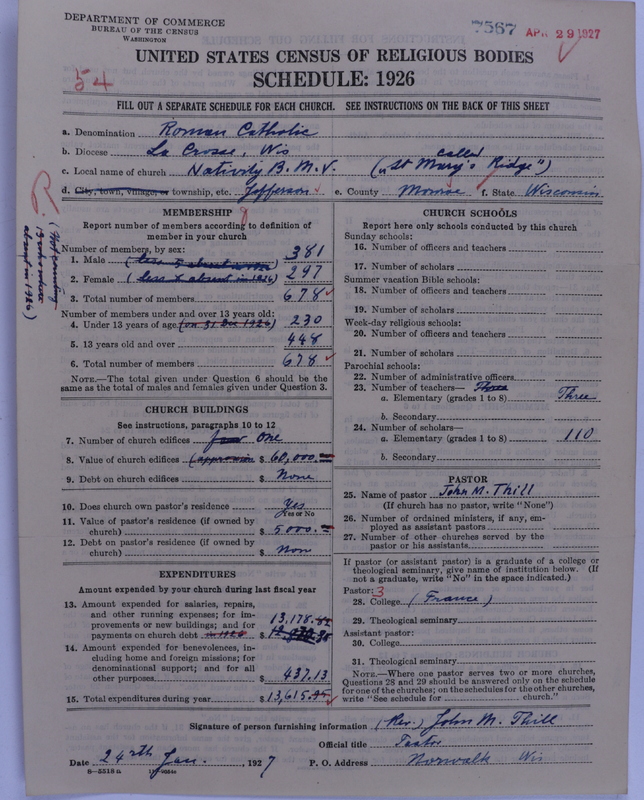 DEPARTMENT OF COMMERCE
BUREAU OF THE CENSUS
WASHINGTON
7567 APR 29 1927
UNITED STATES CENSUS OF RELIGIOUS BODIES
54
SCHEDULE: 1926
FILL OUT A SEPARATE SCHEDULE FOR EACH CHURCH. SEE INSTRUCTIONS ON THE BACK OF THIS SHEET
a. Denomination Roman Catholic
b. Diocese La Crosse, Wis
c. Local name of church Nativity B. M. V. (called "St Mary's Ridge")
d. City, town, village, or township, etc. Jefferson e. County Monroe f. State Wisconsin
MEMBERSHIP
Report number of members according to definition of
member in your church
Number of members, by sex:
1. Male 381
2. Female (less absent in 1926) 297
3. Total number of members 678
Number of members under and over 13 years old:
4. Under 13 years of age (on 31 Dec 1926) 230
5. 13 years old and over 448
6. Total number of members 678
NOTE.—The total given under Question 6 should be the
same as the total of males and females given under Question 3.
CHURCH BUILDINGS
See instructions, paragraphs 10 to 12
7. Number of church edifices One
8. Value of church edifices $ 60,000.
9. Debt on church edifices $ None
10. Does church own pastor's residence Yes
Yes or No
11. Value of pastor's residence (if owned by
church) $ 5000.
12. Debt on pastor's residence (if owned by
church) $ Non
EXPENDITURES
Amount expended by your church during last fiscal year
13. Amount expended for salaries, repairs,
and other running expenses; for im-
provements or new buildings; and for
payments on church debt in 1926 $ 13,178.82
14. Amount expended for benevolences, in-
cluding home and foreign missions; for
denominational support; and for all
other purposes $ 437.13
15. Total expenditures during year $ 13,615.95
CHURCH SCHOOLS
Report here only schools conducted by this church
Sunday schools:
16. Number of officers and teachers
17. Number of scholars
Summer vacation Bible schools:
18. Number of officers and teachers
19. Number of scholars
Week-day religious schools:
20. Number of officers and teachers
21. Number of scholars
Parochial schools:
22. Number of administrative officers
23. Number of teachers— Three
a. Elementary (grades 1 to 8) Three
b. Secondary
24. Number of scholars—
a. Elementary (grades 1 to 8) 110
b. Secondary
PASTOR
25. Name of pastor John M. Thill
(If church has no pastor, write "None")
26. Number of ordained ministers, if any, em-
ployed as assistant pastors
27. Number of other churches served by the
pastor or his assistants
If pastor (or assistant pastor) is a graduate of a college or
theological seminary, give name of institution below. (If
not a graduate, write "No" in the space indicated.)
Pastor: 3
28. College (France)
29. Theological seminary
Assistant pastor:
30. College
31. Theological seminary
NOTE.—Where one pastor serves two or more churches,
Questions 28 and 29 should be answered only on the schedule
for one of the churches; on the schedules for the other churches,
write "See schedule for church."
Signature of person furnishing information (Rev.) John M. Thill
Official title Pastor
Date 24th Jan., 1927 P. O. Address Norwalk Wis
8—5518a